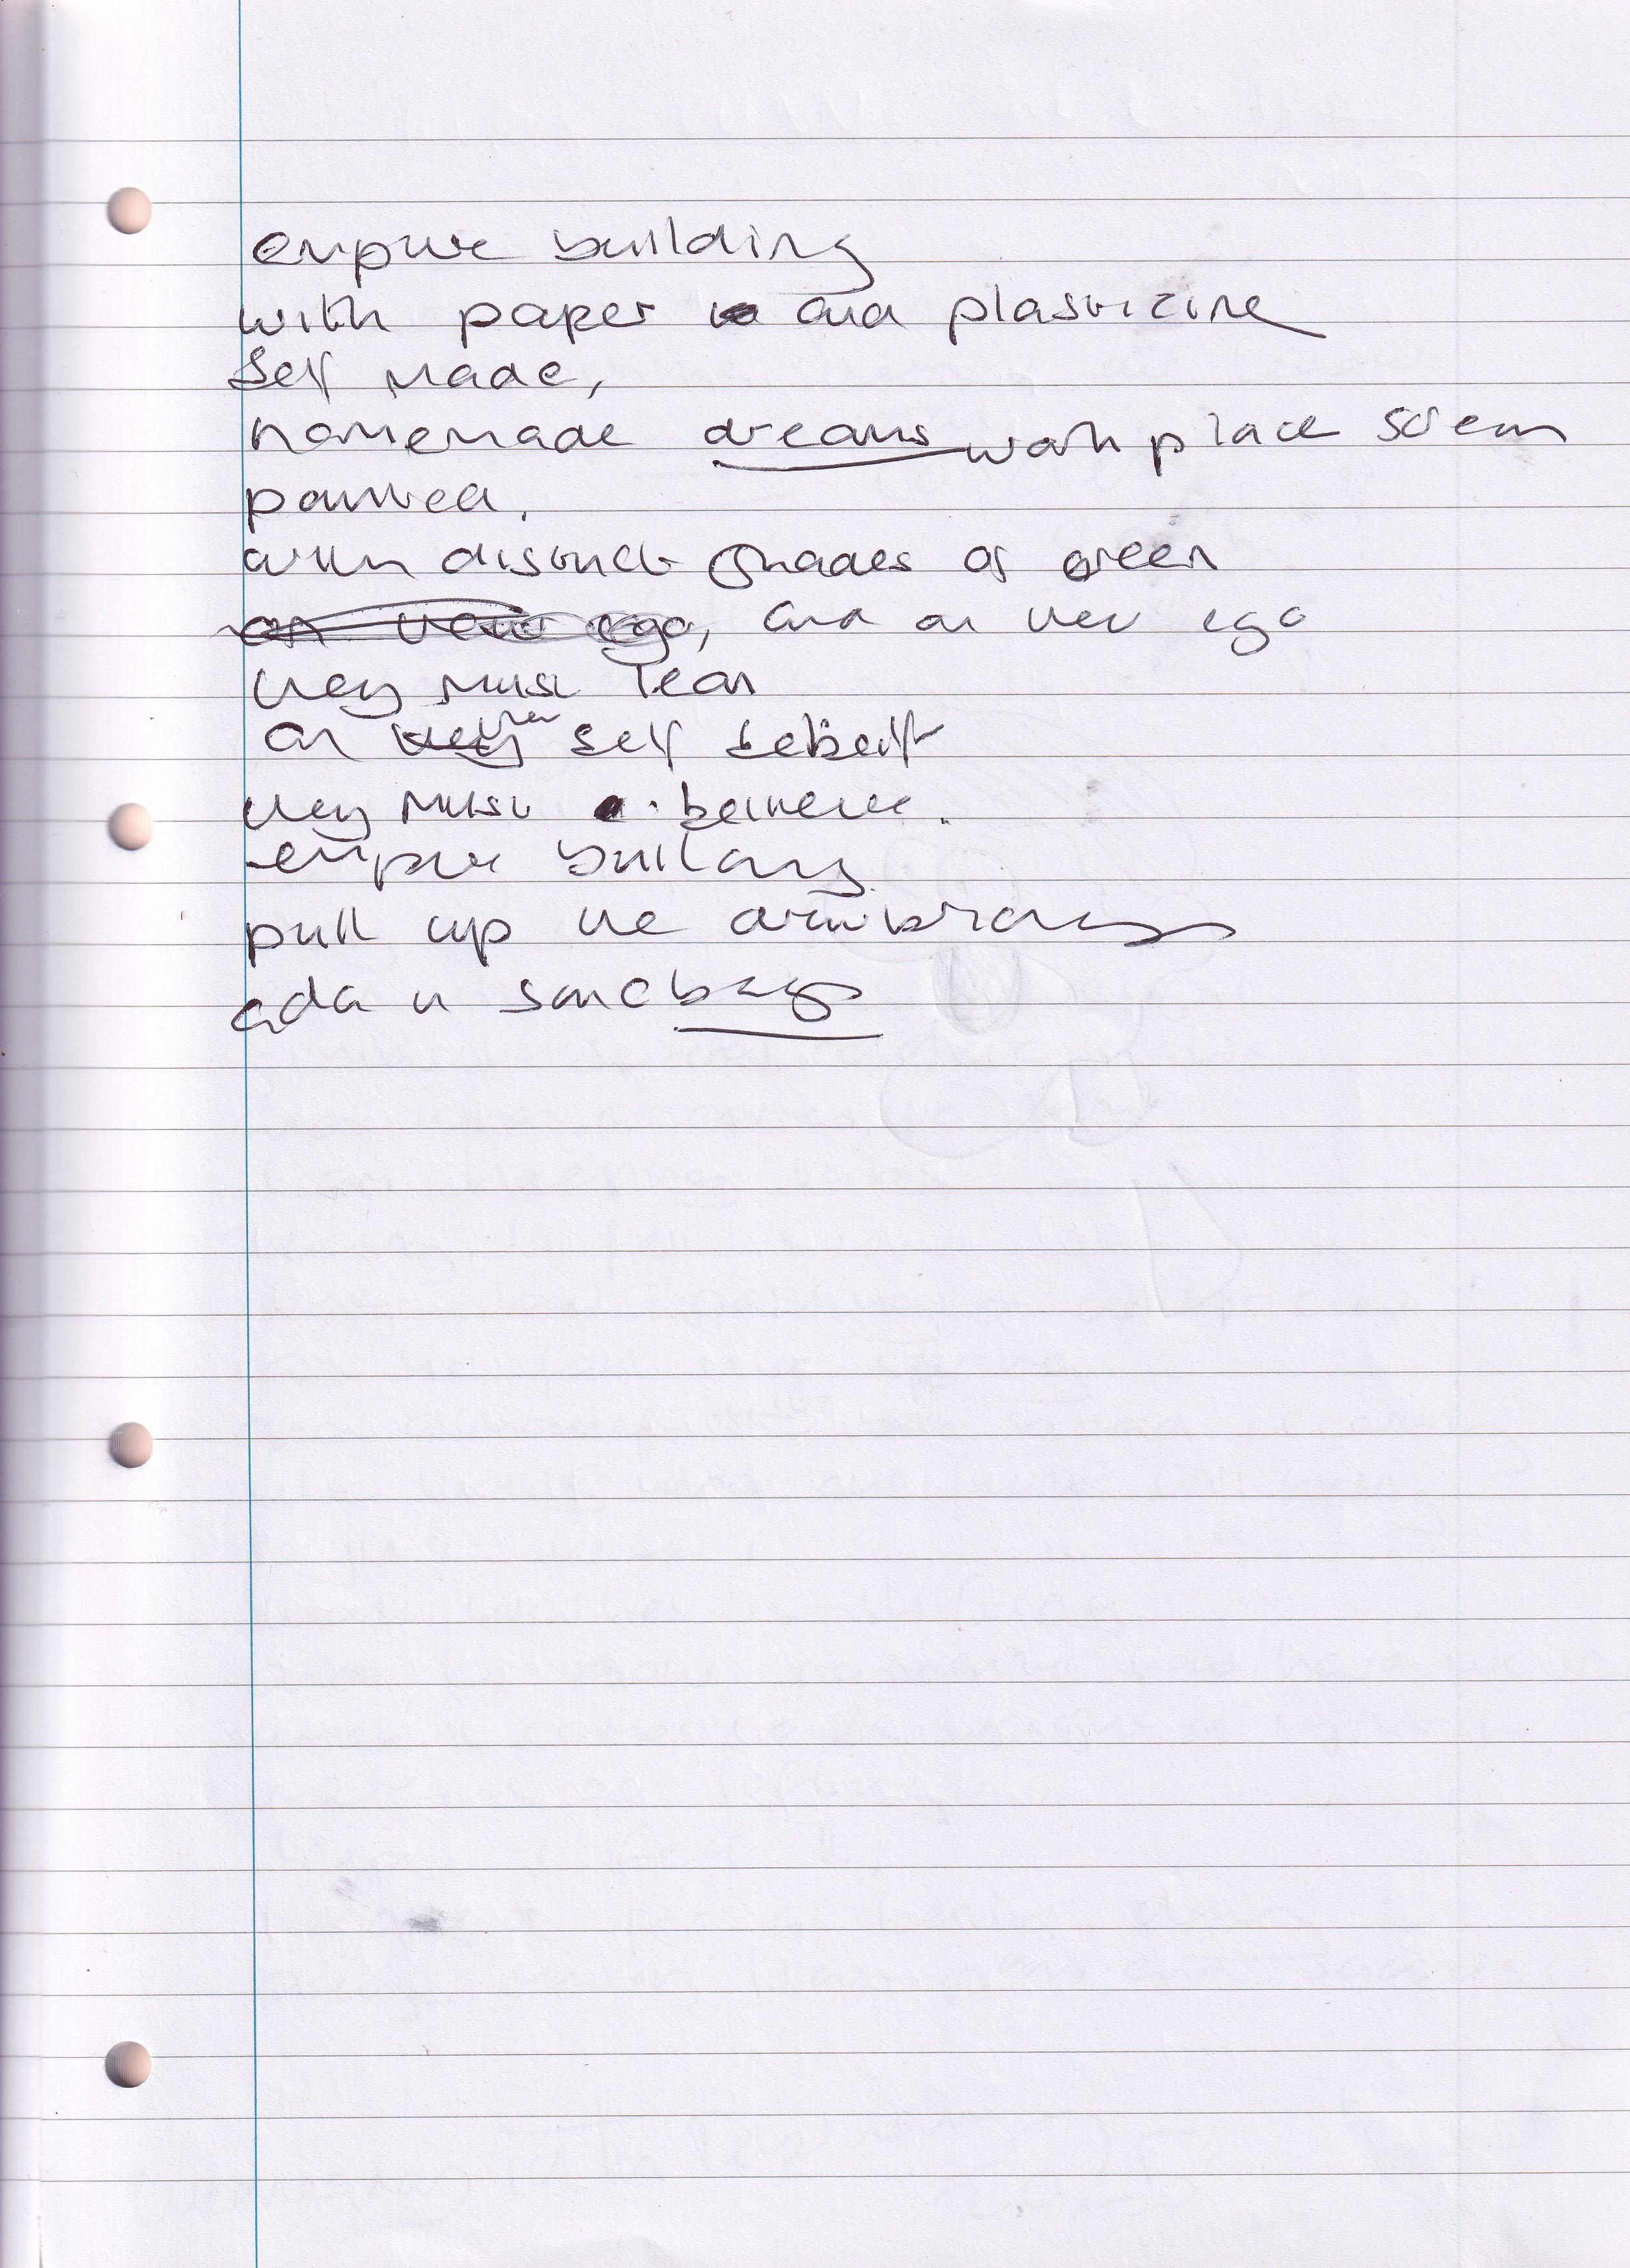 empire building
with paper and plasticine
self made,
homemade dreams work place scien
painted.
with distinct shades of green
on their ego, and on their ego
they must lean
on their self belief
they must believe.
empire building
pull up the drawbridge
add a sandbags